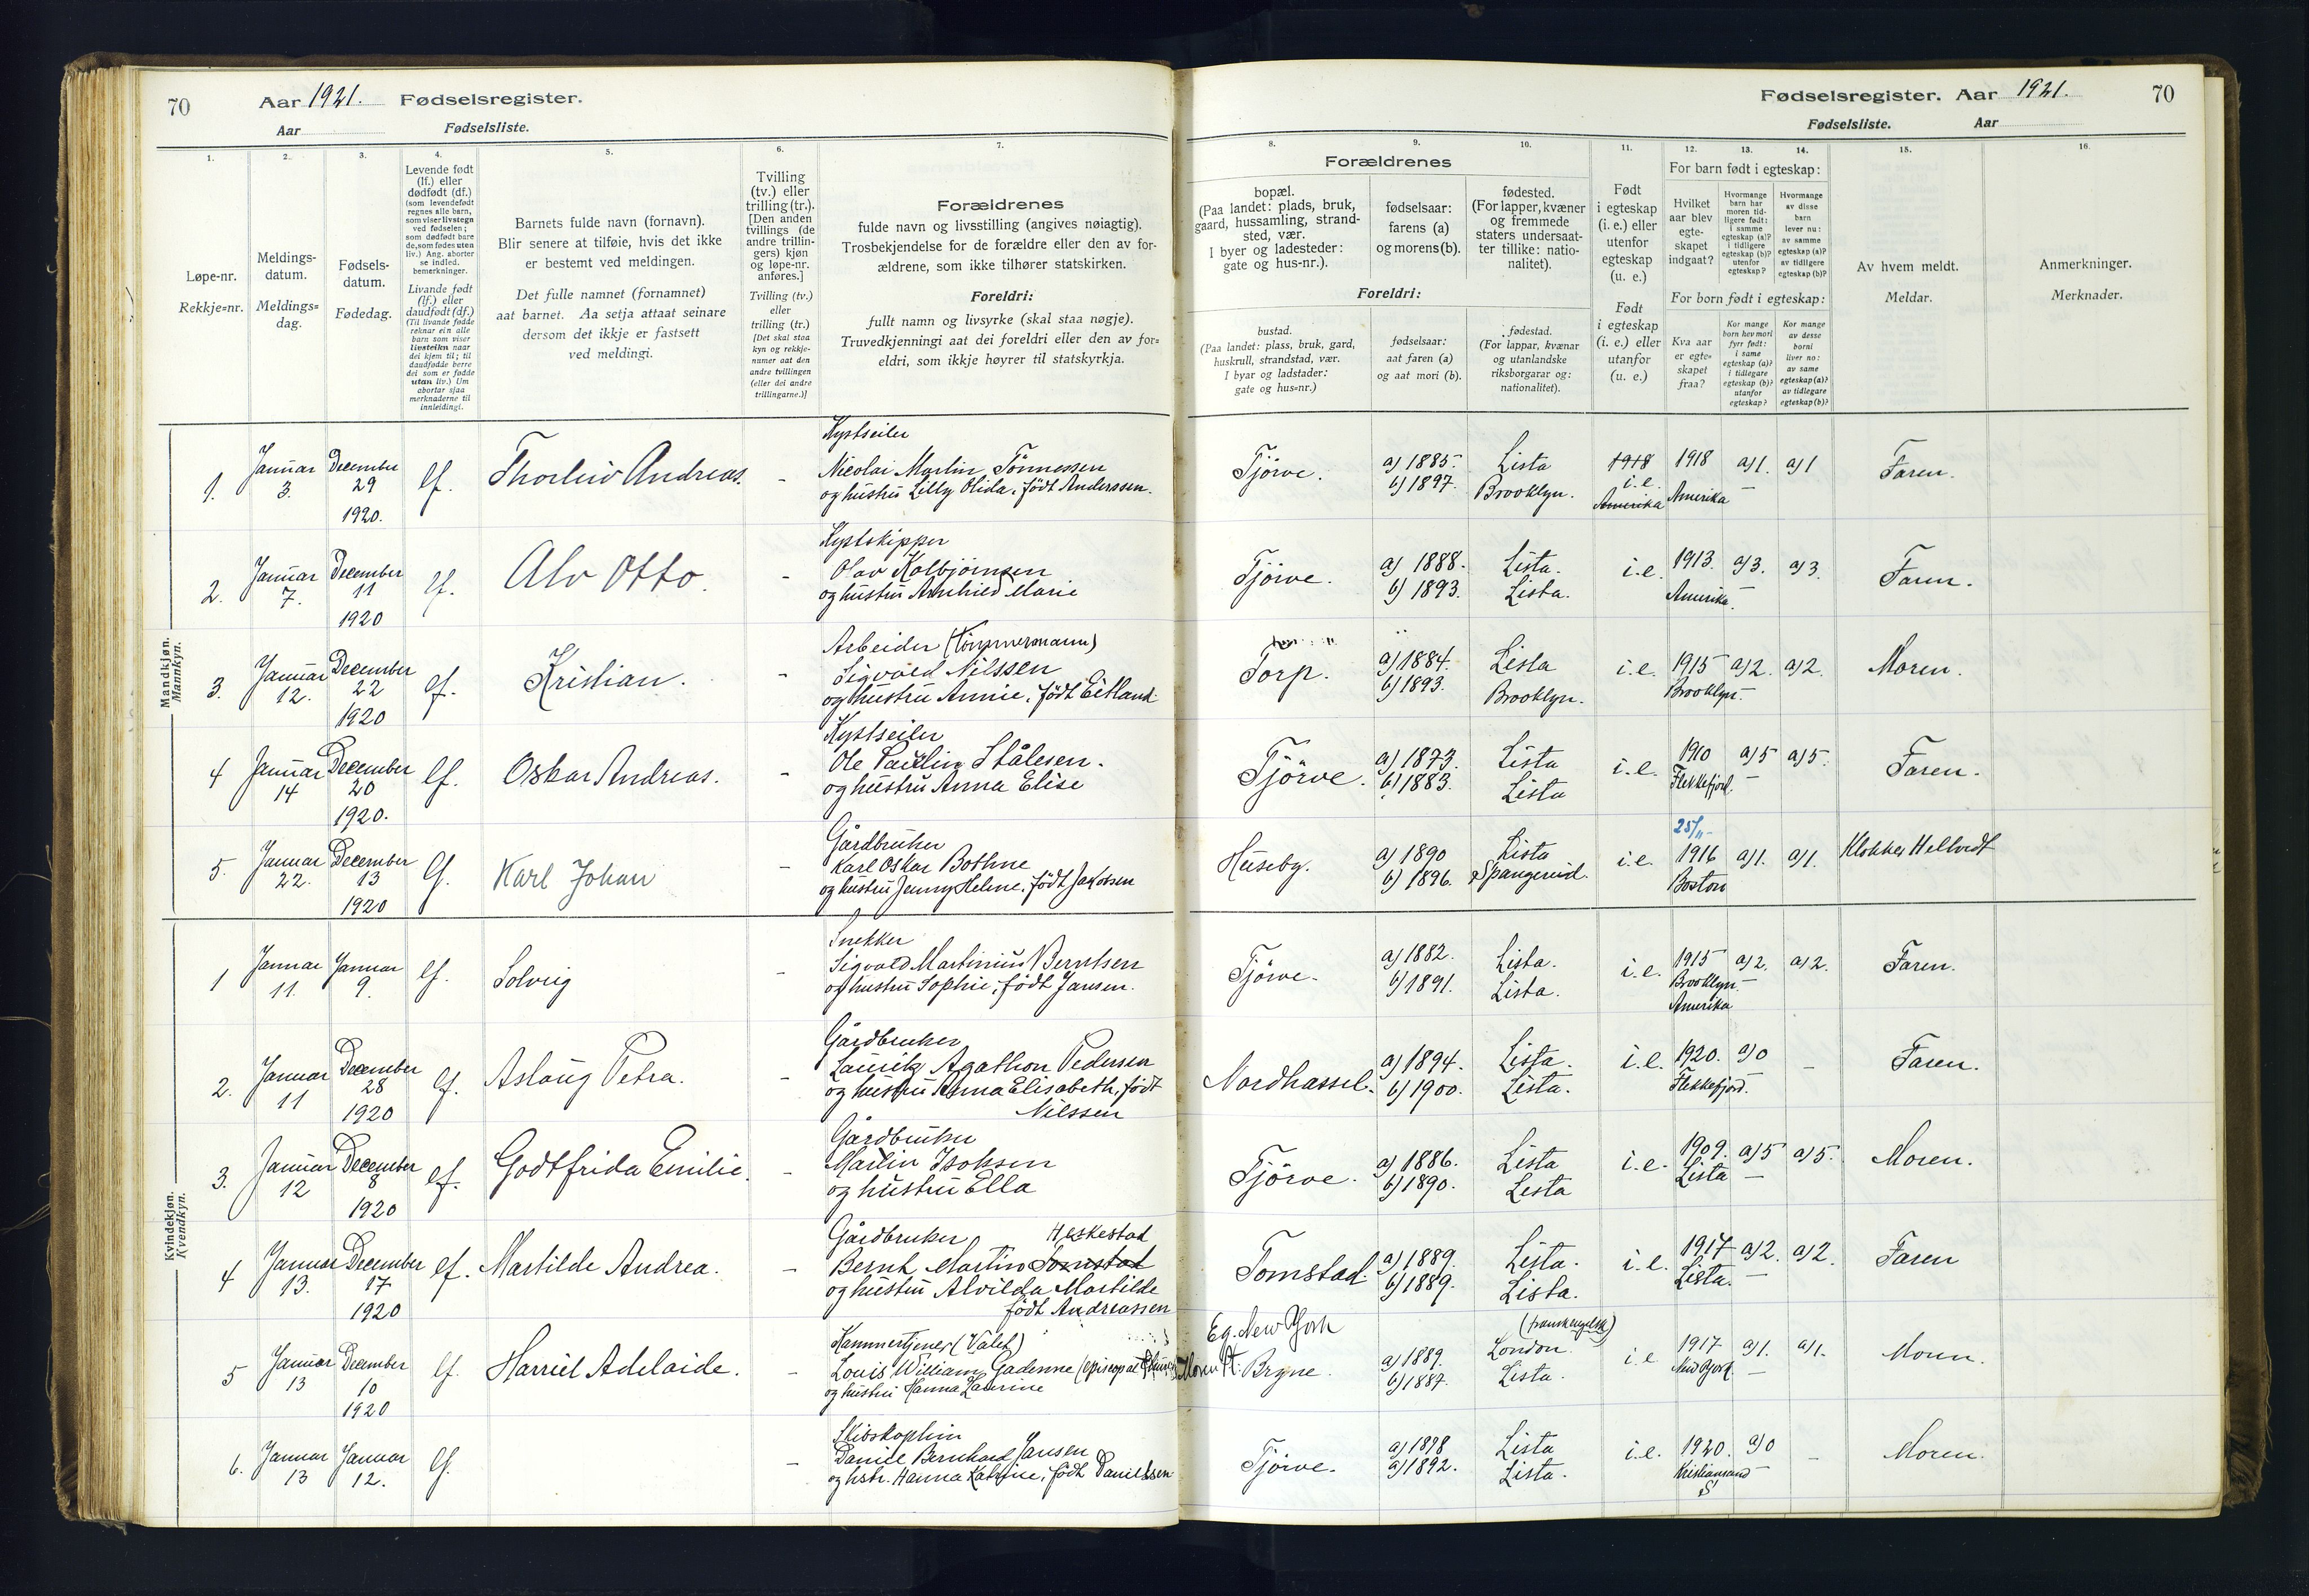 70 Aar 1921. Fødselsregister.
Aar Fødselsliste.
Fødselsregister. Aar 1921. 70
Fødselsliste. Aar
1. 2. 3. 4. 5. 6. 7.
Løpe-nr.
Rekkje=nr.
Meldings-
datum.
Meldings=
dag.
Fødsels-
datum.
Fødedag.
Levende født
(lf.) eller
dødfødt (df.)
(som levendefødt
regnes alle barn,
som viser livstegn
ved fødselen;
som dødfødt bare
de, som fødes uten
liv.) Ang. aborter
se indled.
bemerkninger.
Livande født
(lf.) eller
daudfødt (df.)
(Til livande fødde
reknar ein alle
barn som viser
livsteikn naar
dei kjem til; til
daudfødde berre
dei som er fødde
utan liv.) Um
abortar sjaa
merknaderne til
innleidingi.
Barnets fulde navn (fornavn).
Blir senere at tilføie, hvis det ikke
er bestemt ved meldingen.
Det fulle namnet (fornamnet)
aat barnet. Aa setja attaat seinare
dersom det ikkje er fastsett
ved meldingi.
Tvilling
(tv.) eller
trilling (tr.).
[Den anden
tvillings (de
andre trillin-
gers) kjøn
og løpe-nr.
anføres.]
Tvilling (tv.)
eller
trilling (tr.)
[Det skal staa
kyn og rekkje-
numer aat den
andre tvillingen
(eller dei andre
trillingarne.)]
Forældrenes
fulde navn og livsstilling (angives nøiagtig).
Trosbekjendelse for de forældre eller den av for-
ældrene, som ikke tilhører statskirken.
Foreldri:
fullt namn og livsyrke (skal staa nøgje).
Truvedkjenningi aat dei foreldri eller den av for=
eldri, som ikkje høyrer til statskyrkja.
8. 9. 10. 11. 12. 13. 14. 15. 16.
Forældrenes
bopæl.
(Paa landet: plads, bruk,
gaard, hussamling, strand-
sted, vær.
I byer og ladesteder:
gate og hus-nr.).
fødselsaar:
farens (a)
og morens (b).
fødested.
(For lapper, kvæner
og fremmede
staters undersaat-
ter tillike: natio-
nalitet).
Foreldri:
bustad.
(Paa landet: plass, bruk, gard,
huskrull, strandstad, vær.
I byar og ladstader:
gate og hus=nr.)
fødselsaar:
aat faren (a)
og aat mori (b).
fødestad.
(For lappar, kvænar
og utanlandske
riksborgarar og:
nationalitet).
Født
i egteskap
(i. e.) eller
utenfor
egteskap
(u. e.)
Født
i egteskap
(i. e.) eller
utanfor
(u. e.)
For barn født i egteskap:
Hvilket
aar blev
egte-
skapet
indgaat?
Hvormange
barn har
moren tid-
ligere født:
i samme
egteskap (a)?
i tidligere
egteskap (b)?
utenfor
egteskap?
Hvormange
av disse
barn
lever nu:
av samme
egteskap (a)?
av tidligere
egteskap (b)?
For born født i egteskap:
Kva aar
er egte=
skapet
fraa?
Kor mange
born hev mori
fyrr født:
i same
egteskap (a)?
i tidlegare
egteskap (b)?
utanfor
egteskap?
Kor mange
av desse
borni
liver no:
av same
egteskap (a)?
av tidlegare
egteskap (b)?
Av hvem meldt.
Meldar.
Anmerkninger.
Merknader.
Mandkjøn.
Mannkyn.
Kystseiler
1. Januar 3. December 29 1920. lf. Thorleiv Andreas. - Nicolai Martin Tönnessen
og hustru Lilly Olida, född Anderssen.
Tjörve. a) 1885. b) 1897. Lista Brooklyn. 1918 i.e. Amerika 1918 Amerika a) 1. — a) 1 Faren.
Kystskipper
2. Januar 7. December 11 1920 lf. Alv Otto. - Olav Kolbjörnsen
og hustru Arnhild Marie
Tjörve. a) 1888. b) 1893. Lista. Lista. i.e. 1913. Amerika. a) 3. a) 3. Faren.
Arbeider (Tömmermann)
3. Januar 12. December 22 1920 lf. Kristian. - Sigvald Nilssen
og hustru Annie, född Eitland.
Torp. a) 1884. b) 1893. Lista Brooklyn. i.e. 1915 Brooklyn. a) 2. — a) 2. Moren.
Kystseiler
4 Januar 14 December 20 1920. lf. Oskar Andreas. - Ole Paulin Stålesen.
og hustru Anna Elise
Tjörve. a) 1873. b) 1883. Lista Lista i.e. 1910 Flekkefjord. a) 5 — a) 5. Faren.
Gårdbruker
5. Januar 22. December 13 1920 lf. Karl Johan - Karl Oskar Bothne
og hustru Jenny Helene, född Jakobsen
Huseby. a) 1890 b) 1896. Lista Spangereid. i.e. 25/11- 1916 Boston a) 1. a) 1. Klokker Hellvedt
Kvindekjøn.
Kvendkyn.
Snekker
1 Januar 11. Januar 9. lf. Solveig - Sigvald Martinius Berntsen
og hustru Sophie, född Jansen.
Tjörve. a) 1882. b) 1891. Lista. Lista. i.e. 1915 Brooklyn. Amerika a) 2. a) 2. Faren.
Gårdbruker
2. Januar 11 December 28 1920 lf. Aslaug Petra. - Lauritz Agathon Pedersen
og hustru Anna Elisabeth, född
Nilssen
Nordhassel. a) 1894. b) 1900. Lista. Lista. i.e. 1920. Flekkefjord. a) 0 - Faren.
Gårdbruker
3. Januar 12 December 8 1920 lf. Godtfrida Emilie. - Martin Isaksen
og hustru Ella
Tjörve. a) 1886. b) 1890. Lista Lista i.e. 1909. Lista a) 5 — a) 5. Moren.
Gårdbruker Heskestad
4 Januar 13. December 17 1920 lf. Martilde Andrea. - Bernt Martin Tomstad
og hustru Alvilda Martilde
född Andreassen
Tomstad. a) 1889. b) 1889. Lista. Lista. i.e. 1917 Lista. a) 2. — a) 2. Faren
Kammertjener (Valet)
5 Januar 13 December 10 1920 lf. Harriet Adelaide. - Louis William Gadenne (episcopal Church)
og hustru Hanna Laurine
Eg. New York
Moren pt. Bryne. a) 1889. b) 1887. (franskengelsk) London. Lista. i.e. 1917 New York. a) 1. — a) 1. Moren.
Skibskaptein
6. Januar 13 Januar 12. lf. - Daniel Bernhard Jansen
og hstr. Hanna Katrine, född Danielssen
Tjörve. a) 1898 a) 1892. Lista Lista. i.e. 1920. Kristiansand S a) 0 — - Moren.